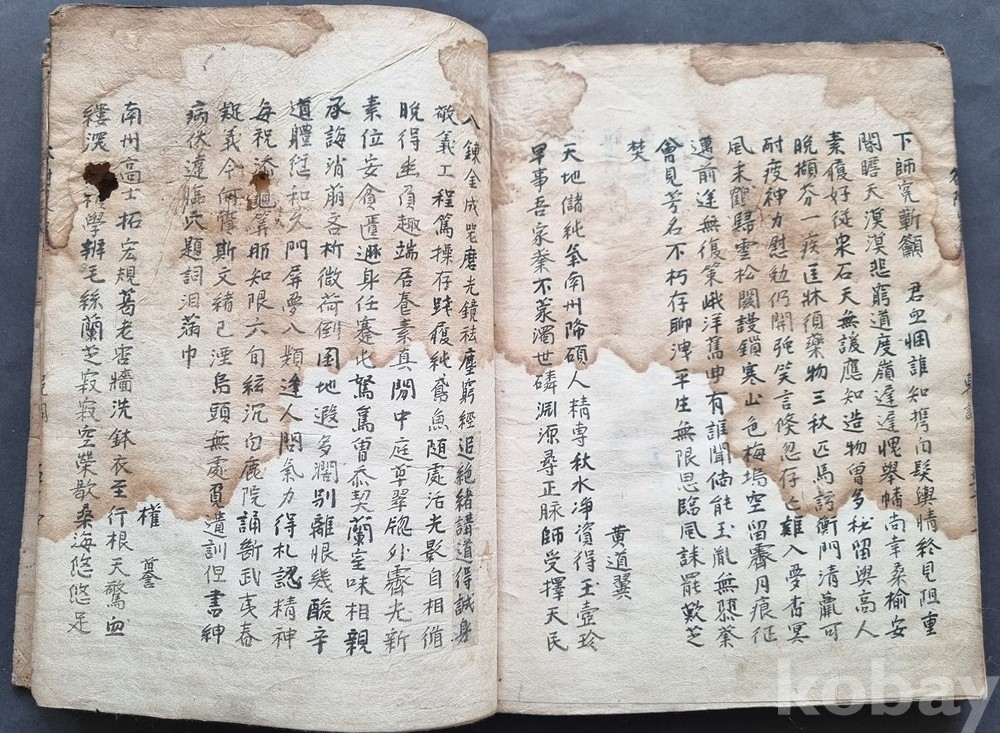 下師冤蘄籲 君血悃誰知攜白髮輿情終見阻重
閽聽天漠漠悲窮道度嶺遲遲愧舉幡尚幸桑榆安
素履好從泉石天無諼應知造物曾多秘留與高人
晩攧芬一疾匡牀傾藥物三秋匹馬訪衡門清羸可
耐疫神力慰勉仍開強笑言倏忽存亡難入夢杳冥
風末鶴歸雲松關謾鎖寒山色梅塢空留霽月痕征
邁前途無復策峨洋舊曲有誰聞倘能玉胤無愆業
會見芳名不朽存聊洩平生無限思臨風誄罷歎芝
焚
黄道翼
天地儲純氣南州降碩人精專秋水净資得玉壺玲
早事吾家業不蒙濁世磷淵源尋正脉師受擇天民
入鍊金成 磨光鏡祛塵窮經追絶緒講道得誠身
敬義工程篤操存踐履純鳶魚随處活光影自相循
晩得坐負趣端居養素真閒中庭草翠牕外霽光新
素位安貧匱遯身任蹇屯駑駘曾忝契蘭室味相親
承誨消萠吝析微荷倒囷地遐多濶别離恨幾酸辛
道體愆和久門屏夢入類逢人問氣力得札認精神
每祝添 筭那知限六旬絃沉白鹿院誦斷武夷春
疑義今何質斯文緒已湮烏頭無處覓遺訓但書紳
病伏違臨穴題詞泪滿巾
權
南州高士拓宏規葛老書牆洗鉢衣至行根天驚血
縷深 學辨毛絲蘭芝寂寂空榮歇桑海悠悠足
kobay